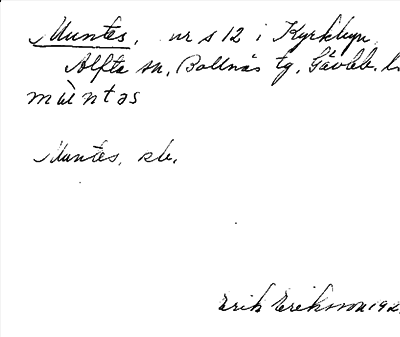 Muntes, nr s 12 i Kyrkbyn
Alfta sn, Bollnäs tg, Gävleb. l
mùntəs
Muntes, sb.
Erik Eriksson 192